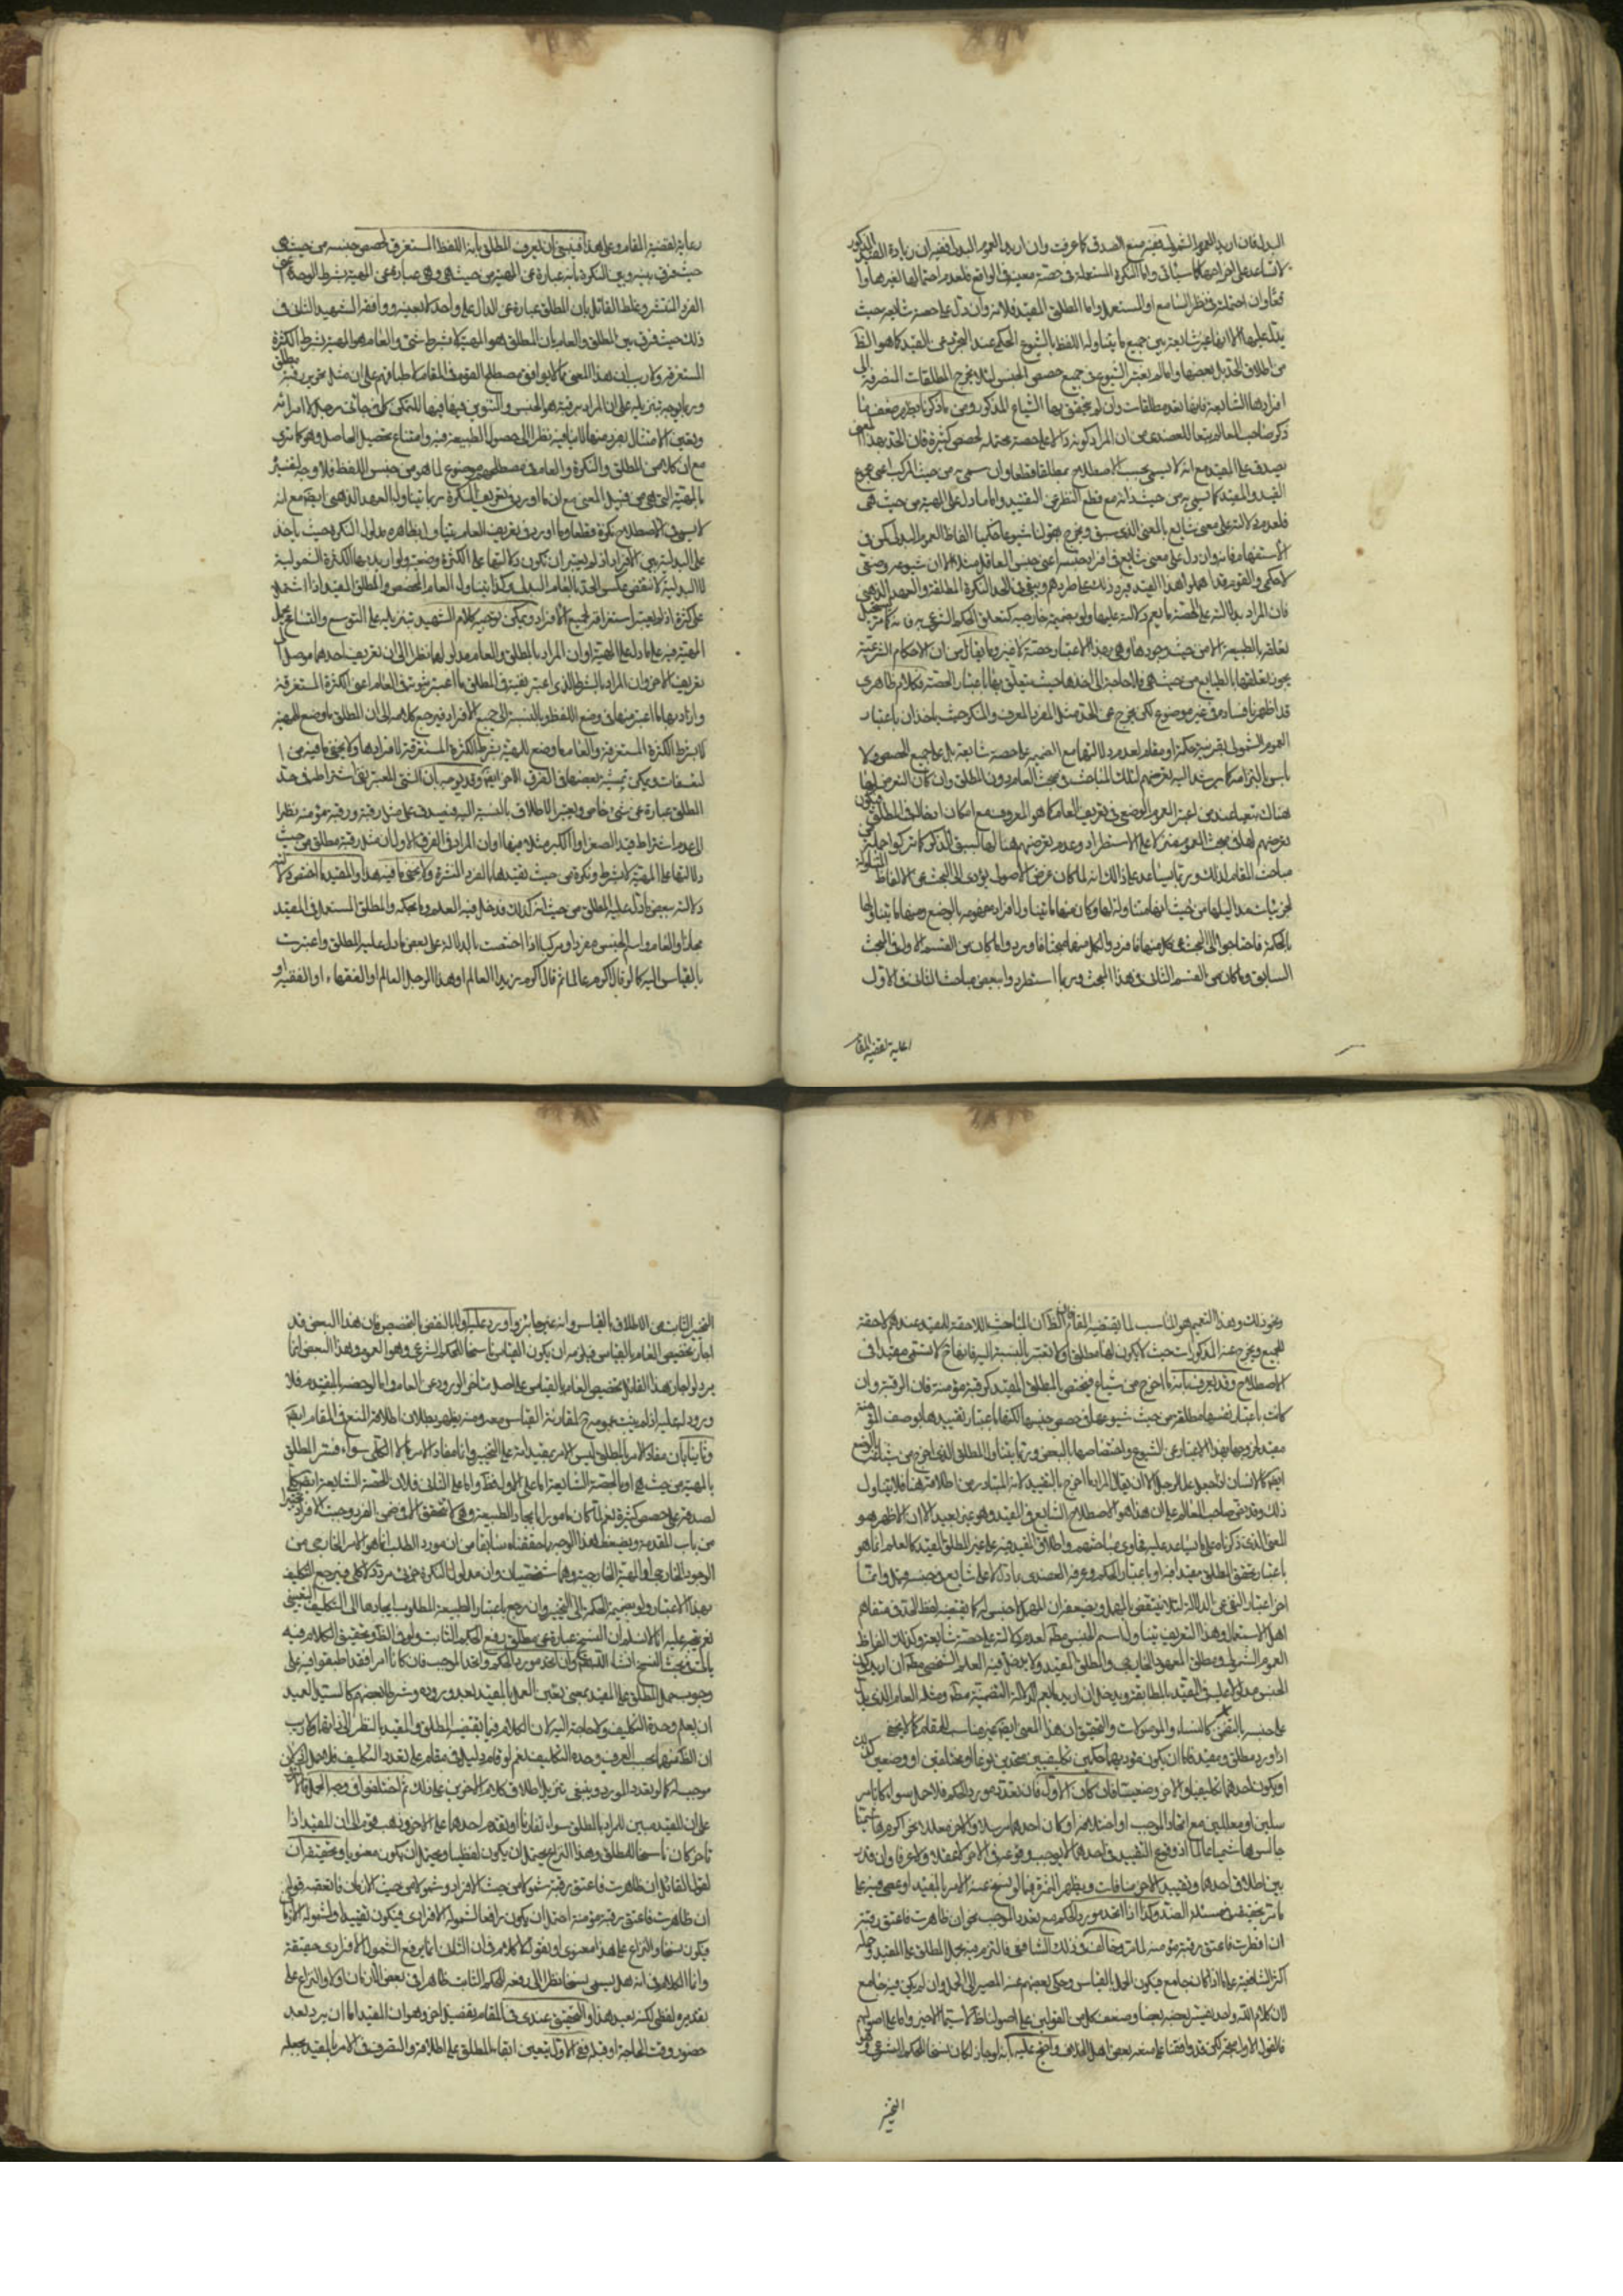 البدلى فان اريد العموم الشمولى ففيه منع الصدق كما عرفت وان اريد العموم البدلى ففيه ان زيادة القيد المذكور
لا تساعد على اخراجها كما سيأتى واما النكرة المستعملة فى حصة معينة فى الواقع فلعدم احتمالها لغيرها واقعا
وان احتملته فى نظر السامع او المستعمل واما المطلق المقيد فلانه وان دل على حصة شايعة حيث
يدل عليها الا انها غير شايعة بين جميع ما يتناوله اللفظ بالشيوع الحكمى عند التجرد عن القيد كما هو الظ
من اطلاق الحد بل بعضها وانما لم نعتبر الشيوع فى جميع حصص الجنس لئلا يخرج المطلقات المنصرفة الى
افرادها الشايعة فانها تعد مطلقات وان لم يتحقق بها الشياع المذكور ومن ما ذكرنا يظهر ضعف ما
ذكره صاحب المعالم تبعا للعضدى من ان المراد كونه دالا على حصة محتملة لحصص كثيرة فان الحد بهذا المعنى
يصدق على المقيد مع انه لا يسمى بحسب الاصطلاح مطلقا قطعا وان سمى به من حيث المركب اعنى مجموع
القيد والمقيد كما يسمى به من حيث ذاته مع قطع النظر عن التقييد واما ما دل على المهية من حيث هى
فلعدم دلالته على معنى شايع بالمعنى الذى سبق ويخرج بقولنا شيوعا حكميا الفاظ العموم البدلى كمن فى
الاستفهام فانه وان دل على معنى شايع فى افراد جنسه اعنى جنس العاقل مثلا الا ان شيوعه وضعى
لا حكمى والقوم قد اهملوا هذا القيد فيرد ذلك على طردهم ويبقى فى الحد النكرة المطلقة والعهد الذهنى
فان المراد بدلالته على الحصة ما يعم دلالته عليها ولو بضميمة خارجية كتعلق الحكم الشرعى به فانه كما مر يستحيل
تعلقه بالطبيعة الا من حيث وجودها وهى بهذا الاعتبار حصة لا غير وما يقال من ان الاحكام الشرعية
يجوز تعلقها بالطبايع من حيث هى فلا حاجة الى اخذها حيث يتعلق بها باعتبار الحصة فكلام ظاهرى
قد اظهرنا فساده فى غير موضوع لكن يخرج عن الحد مثل المفرد المعرف والمنكر حيث ياخذان باعتبار
العموم الشمولى بقرينة حكمة او مقام لعدم دلالتها مع الضميمة على حصة شايعة بل على جميع الحصص ولا
باس بالتزامه كما يرشد اليه تعرضهم لتلك المباحث فى مبحث العام دون المطلق وان كان التعرض لها
هناك يبتعد عند من اعتبر العموم الوضعى فى تعريف العام كما هو المعروف مع امكان ادخاله فى المطلق ويكون
تعرضهم لها فى مبحث العموم مبنيا على الاستطراد وعدم تعرضهم هنا لها لسبق الذكر كما تركوا جملة من
مباحث المقام لذلك وربما يساعد على ذلك انه لما كان غرض الاصولى يؤدى الى البحث عن الالفاظ الشاملة
لجزئيات مداليلها من حيث انها متناولة لها وكان منها ما يتناول افراد مفهومه بالوضع ومنها ما يتناولها
بالحكمة فاحتاجوا الى البحث عن كل منها فافردوا لكل منهما مبحثا فاوردوا ما كان من القسم الاول فى المبحث
السابق وما كان من القسم الثانى فى هذا المبحث وربما استطردوا بعض مباحث الثانى فى الاول
رعاية لقضية المقام
رعاية لقضية المقام وعلى هذا فينبغى ان يعرف المطلق بانه اللفظ المستغرق لحصص جنسه من حيث هى
حيث فرق بينه وبين النكرة بانه عبارة عن المهية من حيث هى وهى عبارة عن المهية بشرط الوحدة اعنى
الفرد المنتشر وغلط القائل بان المطلق عبارة عن الدال على واحد لا بعينه ووافقه الشهيد الثانى فى
ذلك حيث فرق بين المطلق والعام بان المطلق هو المهية لا بشرط شئ والعام هو المهية بشرط الكثرة
المستغرقة ولا ريب ان هذا المعنى مما لا يوافق مصطلح القوم فى المقام لاطباقهم على ان مثل تحرير رقبة مطلق
وربما يوجه بتنزيله على ان المراد برقبة هو الجنس والتنوين فيها فيها للتمكن كما فى جائنى رجل لا امرأة
ويتعين الامتثال بفرد منها لا ينافيه نظرا الى حصول الطبيعة فيه وامتناع تحصيل الحاصل وهو كما ترى
مع ان كلا من المطلق والنكرة والعام فى مصطلحهم موضوع لما هو من جنس اللفظ فلا وجه لتفسير
بالمهية التى هى من قبيل المعنى مع ان ما اورده فى تعريف النكرة ربما يتناول العهد الذهنى ايضا مع انه
لا يسمى فى الاصطلاح نكرة قطعا وما اورده فى تعريف العام يتناول بظاهره مدلول النكرة حيث ياخذ
على البدلية بين الافراد اذ لم يعتبر ان تكون دلالتها على الكثرة وضعية ولو اريد بها الكثرة الشمولية
لا البدلية لانتقض عكس الحد بالعام البدلى وكذا يتناول العام المخصص والمطلق المقيد اذا اشتمل
على كثرة اذ لم يعتبر استغراقه لجميع الافراد ويمكن توجيه كلام الشهيد بتنزيله على التوسع والتسامح بحمل
المهية فيه على ما دل على المهية او ان المراد بالمطلق والعام مدلولهما نظرا الى ان تعريف احدهما موصل الى
تعريف الاخر وان المراد بالشرط الذى اعتبر نفيه فى المطلق ما اعتبر ثبوته فى العام اعنى الكثرة المستغرقة
واراد بها ما اعتبر منها فى وضع اللفظ وبالنسبة الى جميع الافراد فيرجع كلامه الى ان المطلق ما وضع للمهية
لا بشرط الكثرة المستغرقة والعام ما وضع للمهية بشرط الكثرة المستغرقة لافرادها ولا يخفى ما فيه من
التعسفات ويمكن تمشية بعضها فى الفرق الاخر ايضا وقد يوجه بان الشئ المعتبر نفى اشتراطه فى حد
المطلق عبارة عن شئ خاص ويعتبر الاطلاق بالنسبة اليه فيصدق على مثل رقبة ورقبة مؤمنة نظرا
الى عدم اشتراط قيد الصغر او الكبر مثلا فيها او ان المراد فى الفرق الاول ان مثل رقبة مطلق من حيث
دلالتها على المهية لا بشرط ونكرة من حيث تقييدها بالفرد المنتشرة ولا يخفى ما فيه هذا والمقيد ما اختص دلالته
دلالته ببعض ما دل عليه المطلق من حيث انه كذلك فدخل فيه العلم وما بحكمه والمطلق المستعمل فى المقيد
مجازا والعام واسم الجنس مفردا ومركبا اذا اختصت بالدلالة على بعض ما دل عليه المطلق واعتبرت
بالقياس اليه كما لو قال اكرم عالما ثم قال اكرم زيدا العالم او هذا الرجل العالم او الفقهاء او الفقيه او
ونحو ذلك وهذا التعميم هو المناسب لما يقتضيه المقام فان الظ ان المباحث اللاحقة للمقيد عندهم لاحقة
للجميع ويخرج عنه المذكورات حيث لا يكون لها مطلق او لا تعتبر بالنسبة اليه فانها ح لا تسمى مقيدا فى
الاصطلاح وقد يعرف بانه ما اخرج من شياع فيختص بالمطلق المقيد كرقبة مؤمنة فان الرقبة وان
كانت باعتبار نفسها مطلقة من حيث شيوعها فى حصص جنسها لكنها باعتبار تقييدها بوصف المؤمنة
مقيدة لخروجها بهذا الاعتبار عن الشيوع واختصاصها بالبعض وربما يتناول المطلق الذى اخرج من شياعه بالوضع
ايضا كالانسان اذا جعل علما لرجل الا ان يقال المراد ما اخرج بالتقييد لانه المتبادر من اطلاقه هنا فلا يتناول
ذلك وقد نص صاحب المعالم على ان هذا هو الاصطلاح الشايع فى المقيد وهو غير بعيد الا ان الاظهر هو
المعنى الذى ذكرناه على ما يساعد عليه فحاوى مباحثهم واطلاق المقيد فيه على غير المطلق المقيد كالعلم انما هو
باعتبار تحقق المطلق مقيدا فيه او باعتبار الحكم وعرفه العضدى بما دل لا على شايع فى جنسه قال وانما
اخر اعتبار النفى عن الدلالة لئلا ينتقض بالمهمل ويضعفه ان المهمل لا جنس له كما يقتضيه لفظ الحد فى متفاهم
اهل الاستعمال وهذا التعريف يتناول اسم الجنس مطلقا لعدم دلالته على حصة شايعة وكذلك الفاظ
العموم الشمولى ومطلق المعهود الخارجى والمطلق المقيد ولا يدخل فيه العلم الشخصى مطلقا ان اريد كون
الجنس مدلولا عليه فى المقيد بالمطابقة ويدخل ان اريد ما يعم الدلالة التضمنية مطلقا ومثله العام الذى يدل
على جنسه بالتضمن كالنساء والموصولات والتحقيق ان هذا المعنى ايضا غير مناسب للمقام كما لا يخفى
اذا ورد مطلق ومقيد فاما ان يكون مؤديهما حكمين تكليفيين متحدين نوعا او مختلفين او وضعيين كذلك
او يكون احدهما تكليفيا والاخر وضعيا فان كان الاول فان تعدد مورد الحكم فلا حمل سواء كانا مر
سلين او معللين مع اتحاد الموجب او اختلافه او كان احدهما مرسلا والاخر معللا نحو اكرم هاشميا
جالس هاشميا عالما اذ وقوع التقييد فى احدهما لا يوجب وقوعه فى الاخر لا عقلا ولا عرفا وان قدر
بين اطلاق احدهما وتقييد الاخر منافات ويظهر الثمرة فيما لو نسخ عنه الامر بالمقيد او عصى فيه على
ما مر تحقيقه فى مسئلة الضد وكذا اذا اتحد مورد الحكم مع تعدد الموجب نحو ان ظاهرت فاعتق رقبة
ان افطرت فاعتق رقبة مؤمنة لما مر وخالف فى ذلك الشافعى فالتزم فيه بحمل المطلق على المقيد وحمله
اكثر الشافعية على ما اذا كان جامع فيكون الحمل بالقياس وحكى بعضهم عنه المصير الى الحمل وان لم يكن فيه جامع
لان كلام الله واحد يفسر بعضه بعضا وضعف كل من القولين على اصولنا ظ لا سيما الاخير واما على اصولهم
فالقول الاول متجه لكن قد وافقنا على منعه بعض اهل الخلاف واحتج عليه بانه لو جاز لكان نسخا للحكم الشرعى وهو
التخيير
التخيير الثابت من الاطلاق بالقياس وانه غير جائز واورد عليه اولا بالنقض بالتخصيص فان هذا البعض قد
اجاز تخصيص العام بالقياس فيلزمه ان يكون القياس ناسخا للحكم الشرعى وهو العموم وهذا النقض انما
يرد لو اجاز هذا القائل تخصيص العام بالقياس على اصل متأخر الورود عن العام واما لو خصه بالمقدم فلا
ورود له عليه اذ لم يثبت عمومه ح لمقارنة القياس معه ومنه يظهر بطلان اطلاق المنع فى المقام ايضا
وثانيا بان مفاد الامر بالمطلق ليس الامر بمقيداته على التخيير وانما مفاد الامر بالكلى سواء فسر المطلق
بالمهية من حيث هى او بالحصة الشايعة اما على الاول فظ واما على الثانى فلان الحصة الشايعة ايضا كلى
لصدقه على حصص كثيرة نعم لما كان مامورا بايجاد الطبيعة وهى لا تتحقق الا فى ضمن الفرد وجبت الافراد تخييرا
من باب المقدمة ويضعف هذا الوجه بما حققناه سابقا من ان مورد الطلب انما هو الامر الخارجى من
الوجود الخارجى او المهية الخارجية وهما شخصيان وان مدلول النكرة جزئى مردد لا كلى فيرجع التكليف
بهذا الاعتبار ولو بضميمة الحكمة الى التخيير وان رجع باعتبار الطبيعة المطلوب ايجادها الى التكليف التعيينى
نعم يتجه عليه انا لا نسلم ان النسخ عبارة عن مطلق رفع الحكم الثابت ولو فى الظ وتحقيق الكلام فيه
يأتى فى مبحث النسخ انشاء الله تعالى وان اتحد مورد الحكم واتحد الموجب فان كانا امر فقد اطبقوا فيه على
وجوب حمل المطلق على المقيد بمعنى تعين العمل بالمقيد بعد وروده وشرط بعضهم كالسيد العميد
ان يعلم وحدة التكليف ولا حاجة اليه لان الكلام فيما يقتضيه المطلق والمقيد بالنظر الى ذاتهما ولا ريب
ان الظ منهما بحسب العرف وحدة التكليف نعم لو قام دليل فى مقام على تعدد التكليف فلا حمل لانتفاء
موجبه كما لو تعدد المورد وينبغى تنزيل اطلاق كلام الاخرين على ذلك ثم اختلفوا فى وجه الحمل فالاكثر
على ان المقيد مبين للمراد بالمطلق سواء تقارنا او تقدم احدهما على الاخر وذهب قوم الى ان المقيد اذا
تاخر كان ناسخا للمطلق وهذا النزاع يحتمل ان يكون لفظيا ويحتمل ان يكون معنويا وتحقيقه ان
لقول القائل ان ظاهرت فاعتق رقبة شمولا من حيث الافراد وشمولا من حيث الازمان فاذا تعقبه قوله
ان ظاهرت فاعتق رقبة مؤمنة احتمل ان يكون رافعا لشموله الافرادى فيكون تقييدا او لشموله الازمانى
فيكون نسخا والنزاع على هذا معنوى او يقول لا كلام فى ان الثانى انما يرفع الشمول الافرادى حقيقة
وانما الكلام فى انه هل يسمى نسخا نظرا الى رفعه الحكم الثابت ظاهرا فى بعض الازمان او لا والنزاع على
تقديره لفظى لكنه بعيد هذا والتحقيق عندى فى المقام تفصيل اخر وهو ان المقيد اما ان يرد بعد
حضور وقت الحاجة او قبله فعلى الاول يتعين ابقاء المطلق على اطلاقه والتصرف فى الامر بالمقيد بحمله